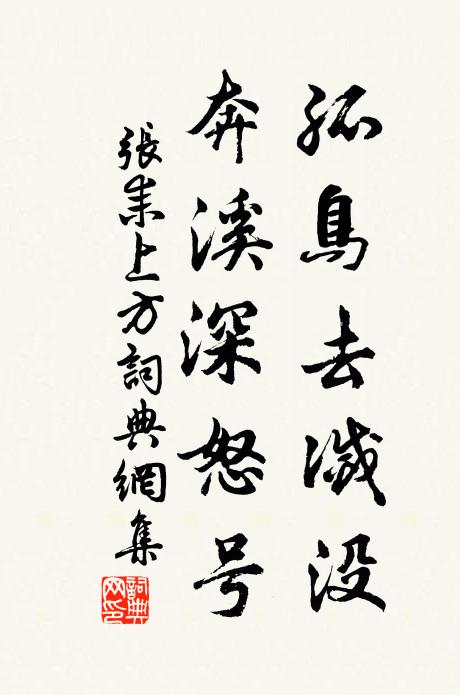 孤鳥去滅没
奔溪深怒号
張耒上方詞典網集
詞典網印